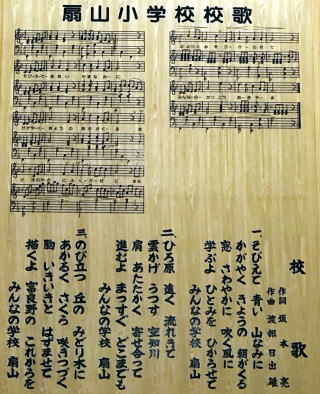 扇山小学校校歌
校歌
作詞 坂本 亮
作曲 渡部 日出雄
一、そびえて 青い 山なみに
かがやく きょうの 朝がくる
窓 さわやかに 吹く風に
学ぶよ ひとみを ひからせて
みんなの学校 扇山
二、ひろ原 遠く 流れきて
雲かげ うつす 空知川
肩 あたたかく 寄せ合って
進むよ まっすぐ どこまでも
みんなの学校 扇山
三、のび立つ 丘の みどり木に
あかるく さくら 咲きつづく
胸 いきいきと はずませて
描くよ 富良野の これからを
みんなの学校 扇山